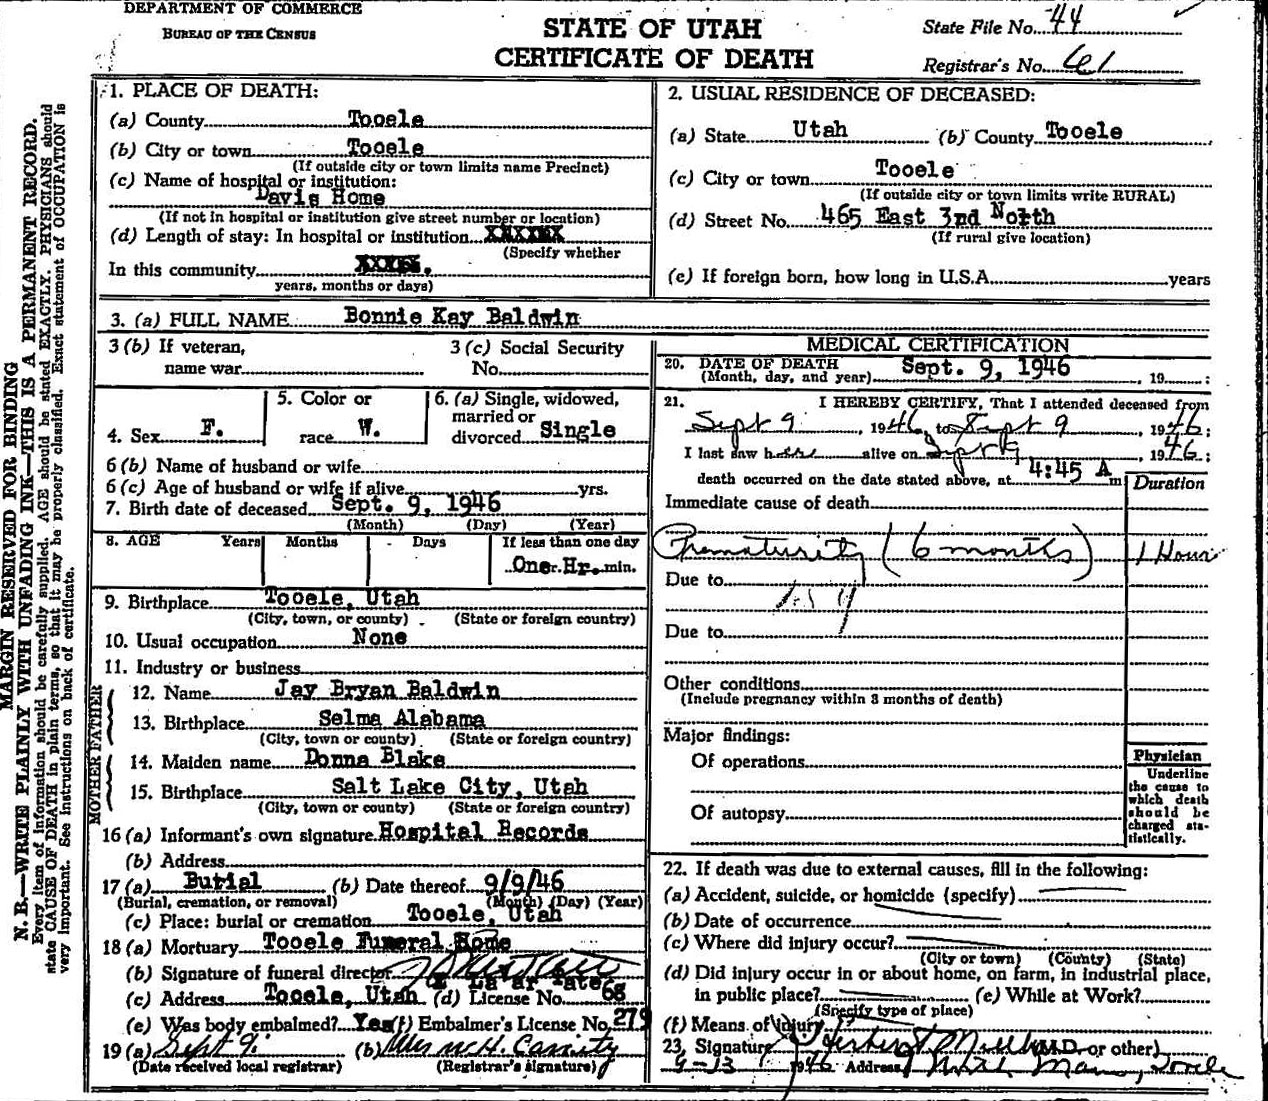 DEPARTMENT OF COMMERCE
BUREAU OF THE CENSUS
STATE OF UTAH
CERTIFICATE OF DEATH
State File No. 44
Registrar's No. 61
MARGIN RESERVED FOR BINDING
N. B.—WRITE PLAINLY WITH UNFADING INK—THIS IS A PERMANENT RECORD.
Every item of information should be carefully supplied. AGE should be stated EXACTLY. PHYSICIANS should
state CAUSE OF DEATH in plain terms, so that it may be properly classified. Exact statement of OCCUPATION is
very important. See instructions on back of certificate.
1. PLACE OF DEATH:
(a) County Tooele
(b) City or town Tooele
(If outside city or town limits name Precinct)
(c) Name of hospital or institution:
Davis Home
(If not in hospital or institution give street number or location)
(d) Length of stay: In hospital or institution XXXXXX
(Specify whether
In this community XXXXX.
years, months or days)
2. USUAL RESIDENCE OF DECEASED:
(a) State Utah (b) County Tooele
(c) City or town Tooele
(If outside city or town limits write RURAL)
(d) Street No. 465 East 3nd North
(If rural give location)
(e) If foreign born, how long in U.S.A. years
3. (a) FULL NAME Bonnie Kay Baldwin
3 (b) If veteran,
name war
3 (c) Social Security
No.
4. Sex F.
5. Color or
race W.
6. (a) Single, widowed,
married or
divorced Single
6 (b) Name of husband or wife
6 (c) Age of husband or wife if alive yrs.
7. Birth date of deceased Sept. 9, 1946
(Month) (Day) (Year)
8. AGE Years Months Days If less than one day
One Hr. min.
9. Birthplace Tooele, Utah
(City, town, or county) (State or foreign country)
10. Usual occupation None
11. Industry or business
FATHER
12. Name Jay Bryan Baldwin
13. Birthplace Selma Alabama
(City, town or county) (State or foreign country)
MOTHER
14. Maiden name Donna Blake
15. Birthplace Salt Lake City, Utah
(City, town or county) (State or foreign country)
16 (a) Informant's own signature Hospital Records
(b) Address
17 (a) Burial (b) Date thereof 9/9/46
(Burial, cremation, or removal) (Month) (Day) (Year)
(c) Place: burial or cremation Tooele, Utah
18 (a) Mortuary Tooele Funeral Home
(b) Signature of funeral director
(c) Address Tooele, Utah (d) License No. 68
(e) Was body embalmed? Yes (f) Embalmer's License No. 279
19 (a) Sept 9. (b) Mrs
(Date received local registrar) (Registrar's signature)
MEDICAL CERTIFICATION
20. DATE OF DEATH
(Month, day, and year) Sept. 9, 1946, 19 :
21. I HEREBY CERTIFY, That I attended deceased from
Sept 9, 1946, to Sept 9, 1946;
I last saw her alive on Sept 9, 1946;
death occurred on the date stated above, at 4:45 A m
Duration
Immediate cause of death
Prematurity (6 months) 1 Hour
Due to
Due to
Other conditions
(Include pregnancy within 3 months of death)
Major findings:
Of operations
Of autopsy
Physician
Underline
the cause to
which death
should be
charged sta-
tistically.
22. If death was due to external causes, fill in the following:
(a) Accident, suicide, or homicide (specify)
(b) Date of occurrence
(c) Where did injury occur?
(City or town) (County) (State)
(d) Did injury occur in or about home, on farm, in industrial place,
in public place? (e) While at Work?
(Specify type of place)
(f) Means of injury
23. Signature Herbert (M.D. or other)
9-13 1946 Address Tooele